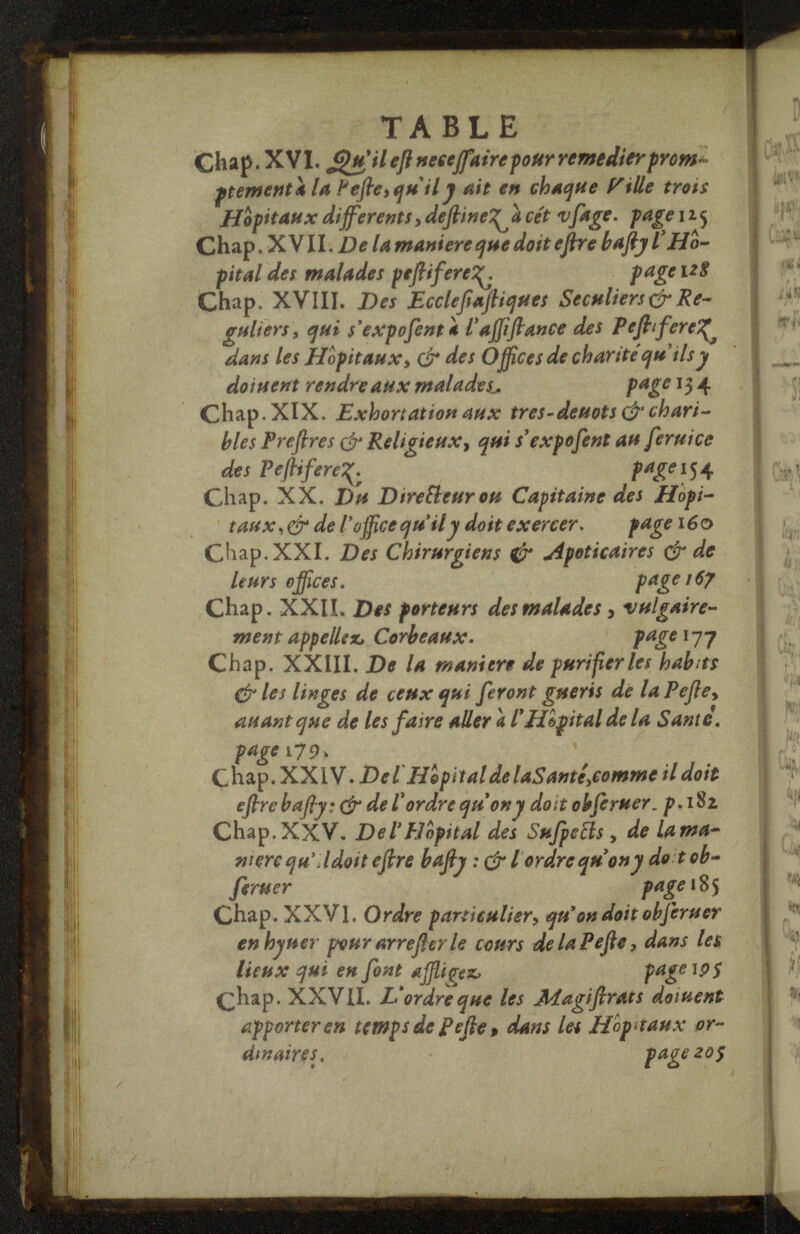 TABLE
Chap. XVI. Qu'il eſt neceſſaire pour remedier prom-
ptement à la Peſte, qu'il y ait en chaque Ville trois
Hôpitaux differents, deſtinez à cét vſage. page 125
Chap. XVII. De la maniere que doit eſtre baſty l'Hô-
pital des malades peſtiferez. page 128
Chap. XVIII. Des Eccleſiaſtiques Seculiers & Re-
guliers, qui s'expoſent à l'aſſiſtance des Peſtiferez
dans les Hôpitaux, & des Offices de charité qu'ils y
doiuent rendre aux malades. page 134
Chap. XIX. Exhortation aux tres-deuots & chari-
bles Preſtres & Religieux, qui s'expoſent au ſeruice
des Peſtiferez. page 154
Chap. XX. Du Directeur ou Capitaine des Hôpi-
taux, & de l'office qu'il y doit exercer. page 160
Chap. XXI. Des Chirurgiens & Apoticaires & de
leurs offices. page 167
Chap. XXII. Des porteurs des malades, vulgaire-
ment appellez Corbeaux. page 177
Chap. XXIII. De la maniere de purifier les habits
& les linges de ceux qui ſeront gueris de la Peſte,
auant que de les faire aller à l'Hôpital de la Santé.
page 179.
Chap. XXIV. De l'Hôpital de la Santé, comme il doit
eſtre baſty: & de l'ordre qu'on y doit obſeruer. p. 182
Chap. XXV. De l'Hôpital des Suſpects, de la ma-
niere qu'il doit eſtre baſty: & l'ordre qu'on y doit ob-
ſeruer page 185
Chap. XXVI. Ordre particulier, qu'on doit obſeruer
en hyuer pour arreſter le cours de la Peſte, dans les
lieux qui en ſont affligez page 195
Chap. XXVII. L'ordre que les Magiſtrats doiuent
apporter en temps de Peſte, dans les Hôpitaux or-
dinaires. page 205